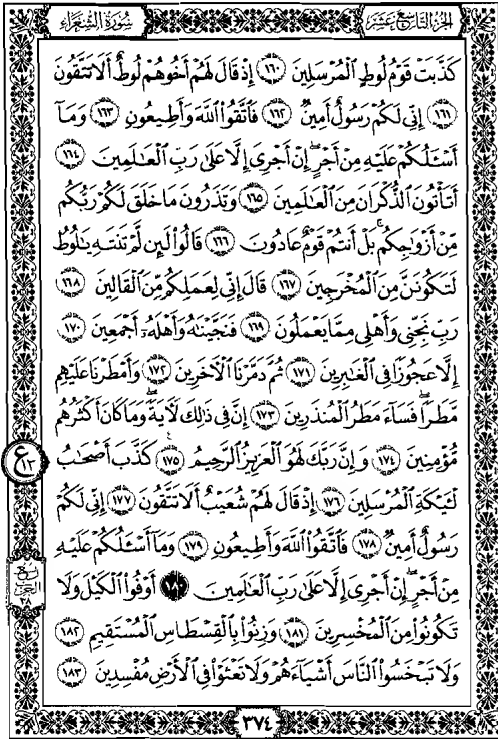 الجزء التاسع عشر
سورة الشعراء
كَذَّبَتْ قَوْمُ لُوطٍ الْمُرْسَلِينَ ١٦٠ إِذْ قَالَ لَهُمْ أَخُوهُمْ لُوطٌ أَلَا تَتَّقُونَ
١٦١ إِنِّي لَكُمْ رَسُولٌ أَمِينٌ ١٦٢ فَاتَّقُوا اللَّهَ وَأَطِيعُونِ ١٦٣ وَمَا
أَسْـَٔلُكُمْ عَلَيْهِ مِنْ أَجْرٍ إِنْ أَجْرِيَ إِلَّا عَلَىٰ رَبِّ الْعَـٰلَمِينَ ١٦٤
أَتَأْتُونَ الذُّكْرَانَ مِنَ الْعَـٰلَمِينَ ١٦٥ وَتَذَرُونَ مَا خَلَقَ لَكُمْ رَبُّكُم
مِّنْ أَزْوَٰجِكُم بَلْ أَنتُمْ قَوْمٌ عَادُونَ ١٦٦ قَالُوا لَئِن لَّمْ تَنتَهِ يَـٰلُوطُ
لَتَكُونَنَّ مِنَ الْمُخْرَجِينَ ١٦٧ قَالَ إِنِّي لِعَمَلِكُم مِّنَ الْقَالِينَ ١٦٨
رَبِّ نَجِّنِي وَأَهْلِي مِمَّا يَعْمَلُونَ ١٦٩ فَنَجَّيْنَـٰهُ وَأَهْلَهُۥٓ أَجْمَعِينَ ١٧٠
إِلَّا عَجُوزًا فِي الْغَـٰبِرِينَ ١٧١ ثُمَّ دَمَّرْنَا الْـَٔاخَرِينَ ١٧٢ وَأَمْطَرْنَا عَلَيْهِم
مَّطَرًا فَسَآءَ مَطَرُ الْمُنذَرِينَ ١٧٣ إِنَّ فِي ذَٰلِكَ لَـَٔايَةً وَمَا كَانَ أَكْثَرُهُم
مُّؤْمِنِينَ ١٧٤ وَإِنَّ رَبَّكَ لَهُوَ الْعَزِيزُ الرَّحِيمُ ١٧٥ كَذَّبَ أَصْحَـٰبُ
لْـَٔيْكَةِ الْمُرْسَلِينَ ١٧٦ إِذْ قَالَ لَهُمْ شُعَيْبٌ أَلَا تَتَّقُونَ ١٧٧ إِنِّي لَكُمْ
رَسُولٌ أَمِينٌ ١٧٨ فَاتَّقُوا اللَّهَ وَأَطِيعُونِ ١٧٩ وَمَآ أَسْـَٔلُكُمْ عَلَيْهِ
مِنْ أَجْرٍ إِنْ أَجْرِيَ إِلَّا عَلَىٰ رَبِّ الْعَـٰلَمِينَ ١٨٠ أَوْفُوا الْكَيْلَ وَلَا
تَكُونُوا مِنَ الْمُخْسِرِينَ ١٨١ وَزِنُوا بِالْقِسْطَاسِ الْمُسْتَقِيمِ ١٨٢
وَلَا تَبْخَسُوا النَّاسَ أَشْيَآءَهُمْ وَلَا تَعْثَوْا فِي الْأَرْضِ مُفْسِدِينَ ١٨٣
ع
١٣
ربع
الحزب
٣٨
٣٧٤